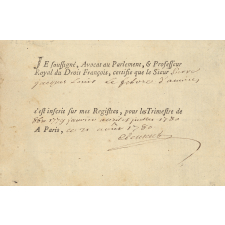 JE soussigné, Avocat au Parlement, & Professeur
Royal du Droit François, certifie que le Sieur Pierre
jacques Louis Le febvre d'
s'est inscris sur mes Registres, pour les Trimestre de
1779 janvier avril et juillet 1780
A Paris, ce août 1780